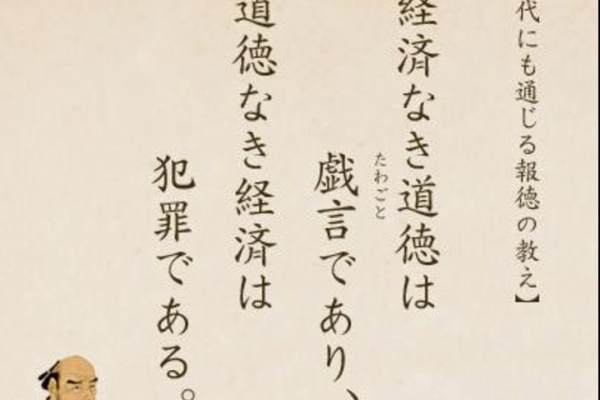 代にも通じる報徳の教え】
経済なき道徳は
たわごと
戯言であり、
道徳なき経済は
犯罪である。